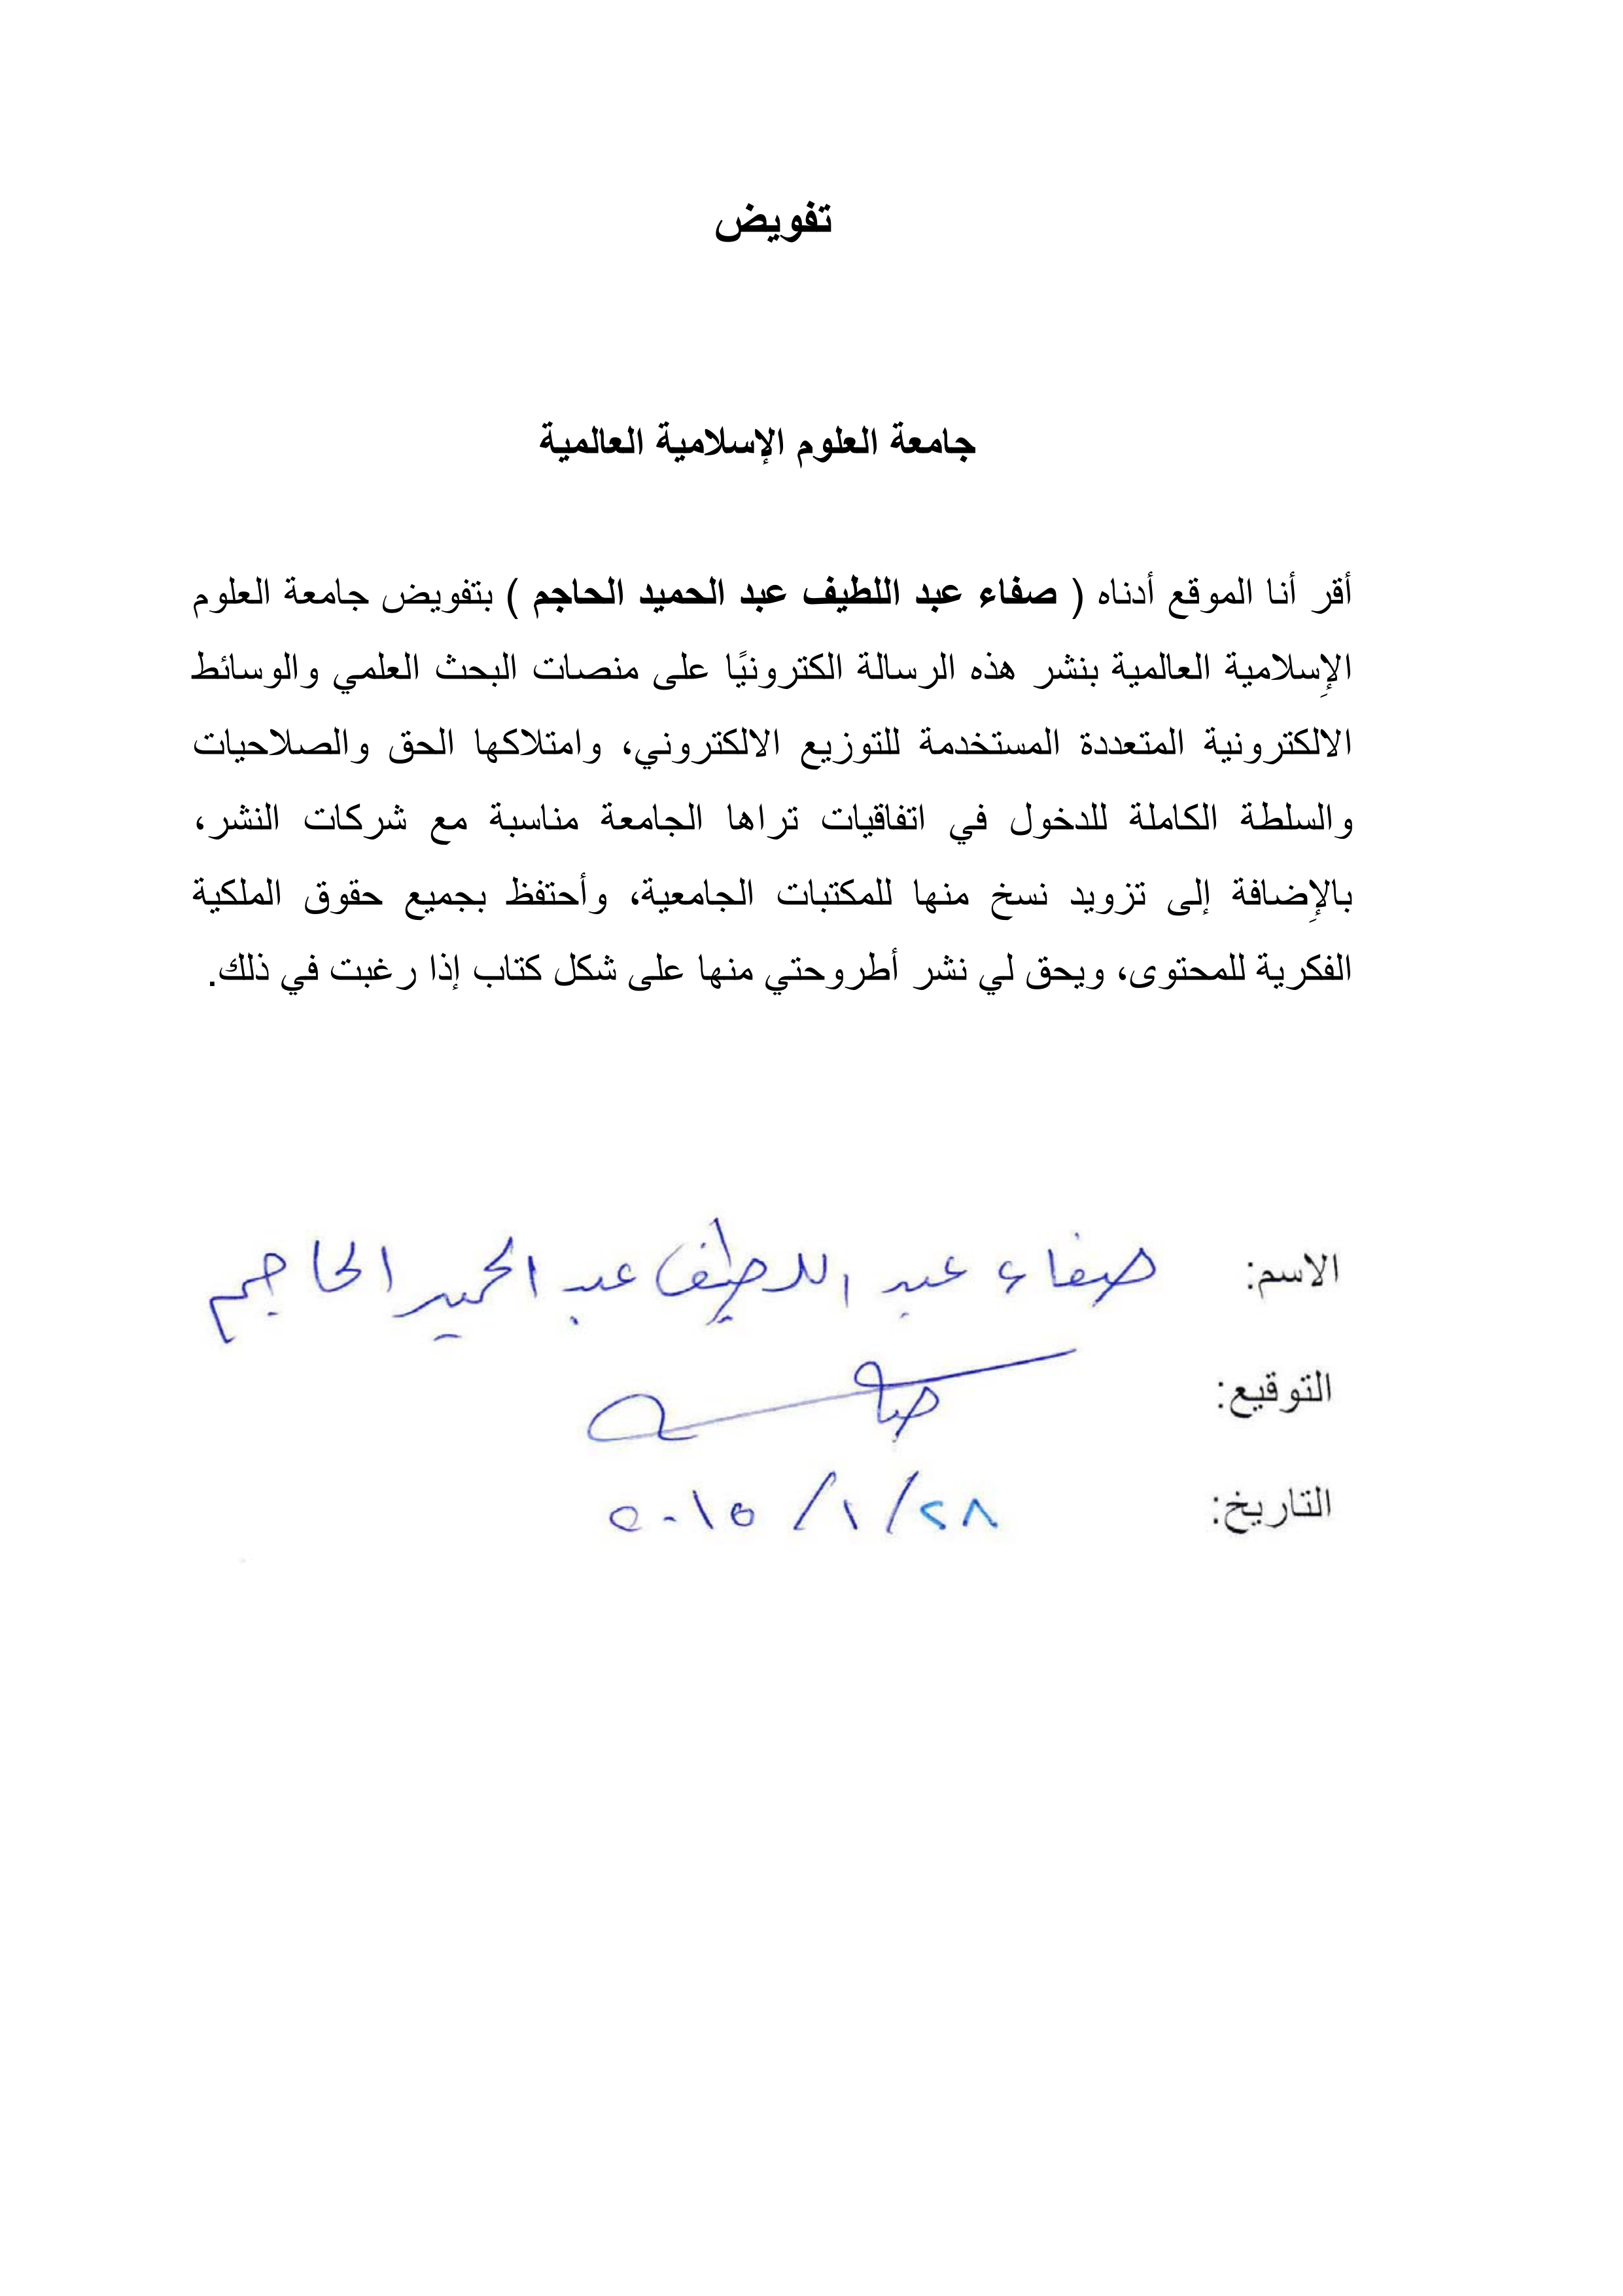 تفويض
جامعة العلوم الإسلامية العالمية
أقر أنا الموقع أدناه ( صفاء عبد اللطيف عبد الحميد الحاجم ) بتفويض جامعة العلوم
الإسلامية العالمية بنشر هذه الرسالة الكترونيًا على منصات البحث العلمي والوسائط
الالكترونية المتعددة المستخدمة للتوزيع الالكتروني، وامتلاكها الحق والصلاحيات
والسلطة الكاملة للدخول في اتفاقيات تراها الجامعة مناسبة مع شركات النشر،
بالإضافة إلى تزويد نسخ منها للمكتبات الجامعية، وأحتفظ بجميع حقوق الملكية
الفكرية للمحتوى، ويحق لي نشر أطروحتي منها على شكل كتاب إذا رغبت في ذلك.
الاسم: صفاء عبد اللطيف عبد الحميد الحاجم
التوقيع:
التاريخ: ٢٨/١/٢٠١٥